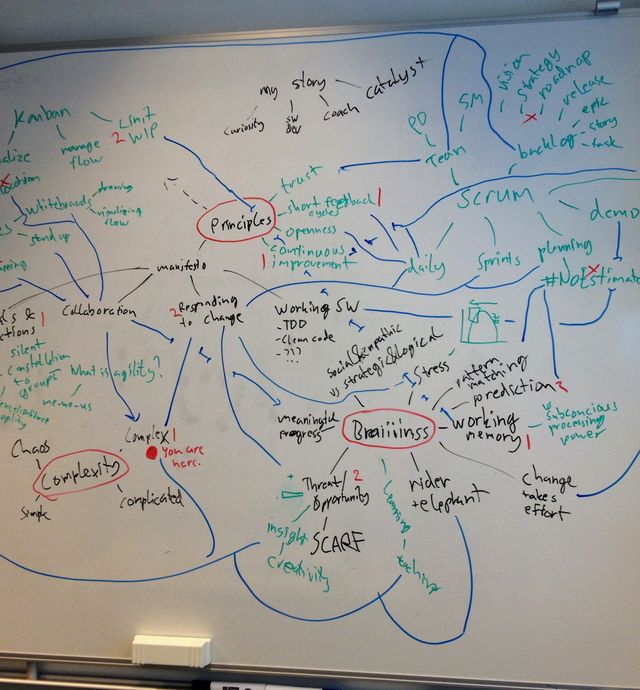 my story
catalyst
curiosity
sw
dev
coach
Kanban
Limit
2 WIP
manage
flow
whiteboards
drawing
visualizing
flow
stand up
Principles
trust
short feedback 1
cycles
openness
1 continuous
improvement
PO
SM
Team
vision
strategy
roadmap
x
release
epic
story
task
backlog
SCRUM
daily
Sprints
planning
demo
#NoEstimate
x
manifesto
Collaboration
2 Responding
to change
Working SW
- TDD
- Clean code
- ???
1
silent
constellation
to
groups
me-we-us
What is agility?
Complex 1
You are
here.
Chaos
Complexity
Simple
complicated
social & empathic
vs strategic & logical
Stress
meaningful
progress
Braiiiinss
pattern
matching
prediction 2
working
memory 1
vs
subconcious
processing
power
Threat/ 2
Opportunity
SCARF
+
-
insight
creativity
learning
teaching
rider
+ elephant
change
takes
effort